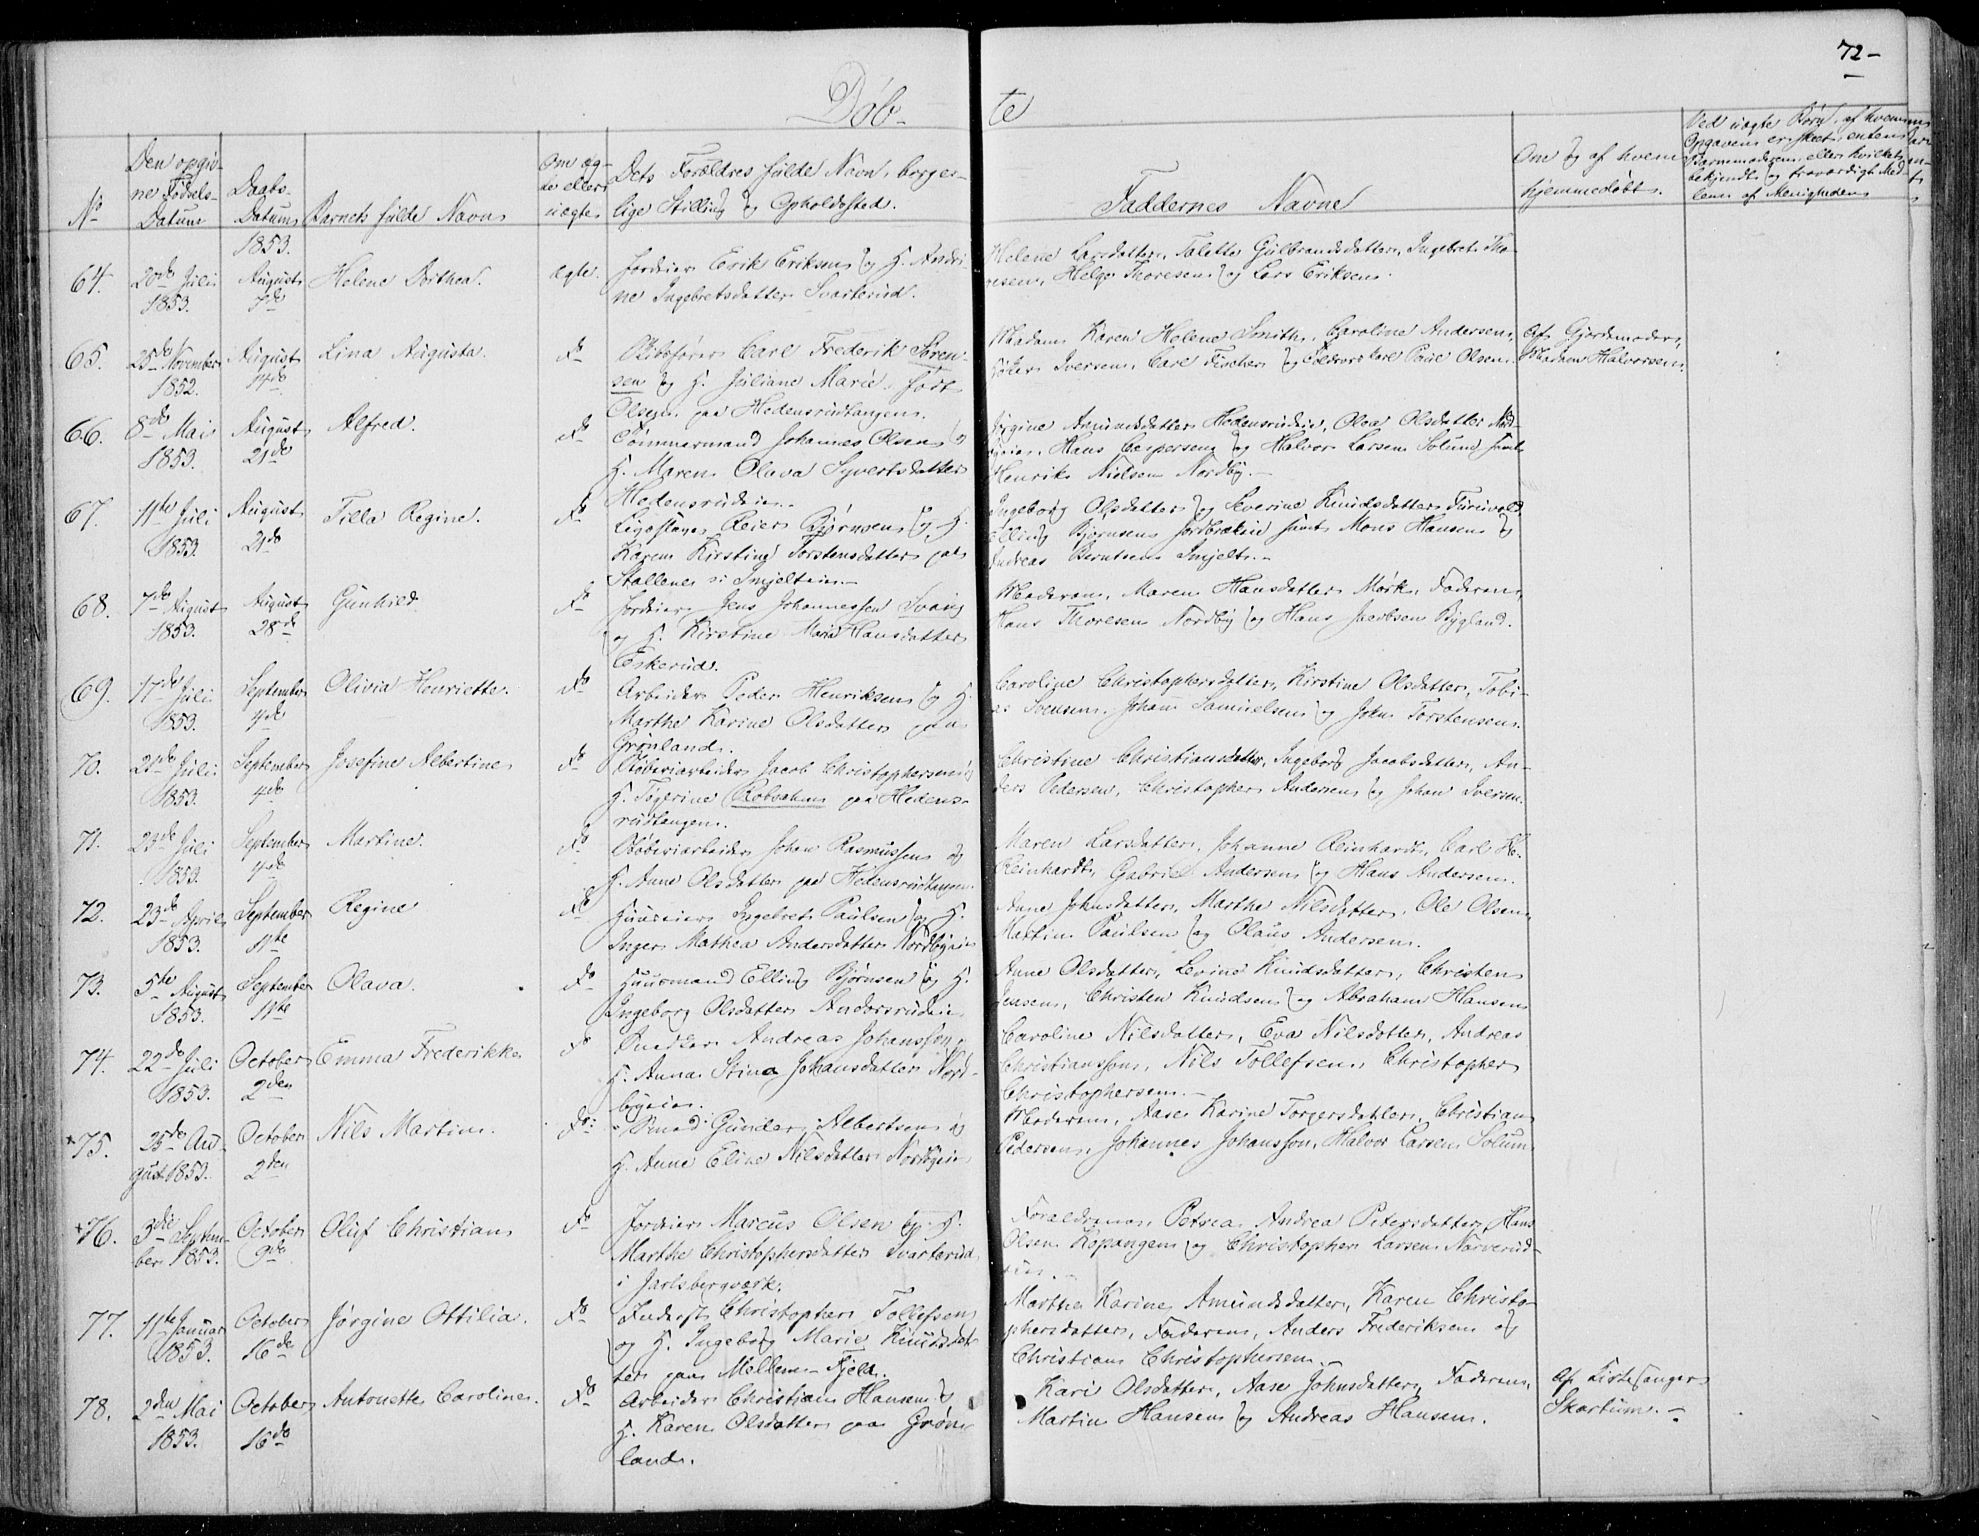 72-
Døb- te
No
Den opgiv-
ne Fødsels-
Datum
Daabs-
Datum
Barnets fulde Navn
Om æg-
te eller
uægte
Dets Forældres fulde Navn, borger-
lige Stilling og Opholdssted.
Faddernes Navne
Om og af hvem
hjemmedøbt.
Ved uægte Børn, af hvem
Opgaven er skeet, enten
Barnemoderen, eller hvilket
bekjendt og troværdigt Med-
lem af Menigheden
1853.
64. 20de Juli August Helene Dorthea. ægte. Jordeier Erik Eriksen og H. Andri-
1853. 7de ne Ingebretsdatter Svarterud.
Helene Larsdatter, Tolette Gulbrandsdatter, Ingebret Tho-
resen, Helge Thoresen og Lars Eriksen.
65. 25de November August Lina Augusta. do Carl Frederik Søren-
1852. 14de sen og H. Juliane Marie, født
Olsen paa Hedensrudtangen.
Madam Karen Helene Smith, Caroline Andersen,
Iversen, Carl Fischer og Paul Olsen.
Af Gjordemoder,
Madam Halvorsen.
66. 8de Mai August Alfred. do Tømmermand Johannes Olsen og
1853. 21de H. Maren Olava Syvertsdatter
Hedensrudeie.
Jørgine Amundsdatter Hedensrudeie, Olea Olsdatter Nord-
byeie, Hans Caspersen og Halvor Larsen Solum samt
Henrik Nielsen Nordby.
67. 11te Juli August Tilla Regine. do Reier Bjørnsen og H.
1853. 21de Karen Kirstine Torstensdatter paa
Stallene i Smjelteie.
Ingeborg Olsdatter og Severine Knudsdatter Furuvold,
Elling Bjørnsen Jordbrække samt Mons Hansen og
Andreas Berntsen Smjelt.
68. 7de August August Gunhild. do Jordeier Jens Johannessen Svang
1853. 28de og H. Kirstine Maria Hansdatter
Eskerud.
Moderen, Maren Hansdatter Mørk, Faderen,
Hans Thoresen Nordby og Hans Jacobsen Bygland.
69. 17de Juli September Olivia Henriette. do Arbeider Peder Henriksen og H.
1853. 4de Marthe Karine Olsdatter paa
Grønland.
Caroline Christophersdatter, Kirstine Olsdatter, Tobi-
as Svensen, Johan Samuelsen og John Torstensen.
70. 21de Juli September Josefine Albertine do Støberiarbeider Jacob Christophersen og
1853. 4de H. Segerine Robsahm paa Hedens-
rudtangen.
Christine Christiansdatter, Ingeborg Jacobsdatter, An-
ders Pedersen, Christopher Andersen og Johan Iversen.
71. 23de Juli September Martine. do Støberiarbeider Johan Rasmussen og
1853. 4de H. Anne Olsdatter paa Hedensrudtangen.
Maren Larsdatter, Johanne Reinhardt, Carl H.
Reinhardt, Gabriel Andersen og Hans Andersen.
72. 23de April September Regine do Huuseier Ingebret Paulsen og H.
1853. 11te Inger Mathea Andersdatter Nordbyeie
Anne Johnsdatter, Marthe Nilsdatter, Ole Olsen,
Martin Paulsen og Olaus Andersen.
73. 5te August September Olava. do Huusmand Elling Bjørnsen og H.
1853. 11te Ingeborg Olsdatter Andorsrudeie
Anne Olsdatter, Levine Knudsdatter, Christen
Jensen, Christen Knudsen og Abraham Hansen
74. 22de Juli October Emma Frederikke do Snedker Andreas Johansson,
1853. 2den H. Anna Stina Johansdatter Nord-
byeie.
Caroline Nilsdatter, Eva Nilsdotter, Andreas
Christiansson, Nils Tollefsen, Christopher
Christophersen.
+75. 25de Au- October Nils Martin. do Smed Gunder Albertsen og
gust 1853. 2den H. Anne Eline Nilsdatter Nordbyeie
Moderen, Aase Karine Torgersdatter, Christian
Pedersen, Johannes Johansson, Halvor Larsen Solum
+76. 3die Septem- October Oluf Christian do Jordeier Marcus Olsen og H.
ber 1853. 9de Marthe Christophersdatter Svarterud
i Jarlsbergværk.
Forældrene, Petrea Andrea Petersdatter, Hans
Olsen Kopangen og Christopher Larsen Narverud-
eie.
77. 11te Januar October Jørgine Ottilia. do Inderst Christopher Tollefsen
1853. 16de og H. Ingeborg Marie Knudsdat-
ter paa Mellem-Fjeld.
Marthe Karine Amundsdatter, Karen Christo-
phersdatter, Faderen, Anders Frederiksen og
Christian Christophersen.
78. 2den Mai October Antonette Caroline. do Arbeider Christian Hansen og
1853. 16de H. Karen Olsdatter paa Grøn-
land.
Kari Olsdatter, Aase Johnsdatter, Faderen,
Martin Hansen og Andreas Hansen.
Af Kirkesanger
Skartum.-